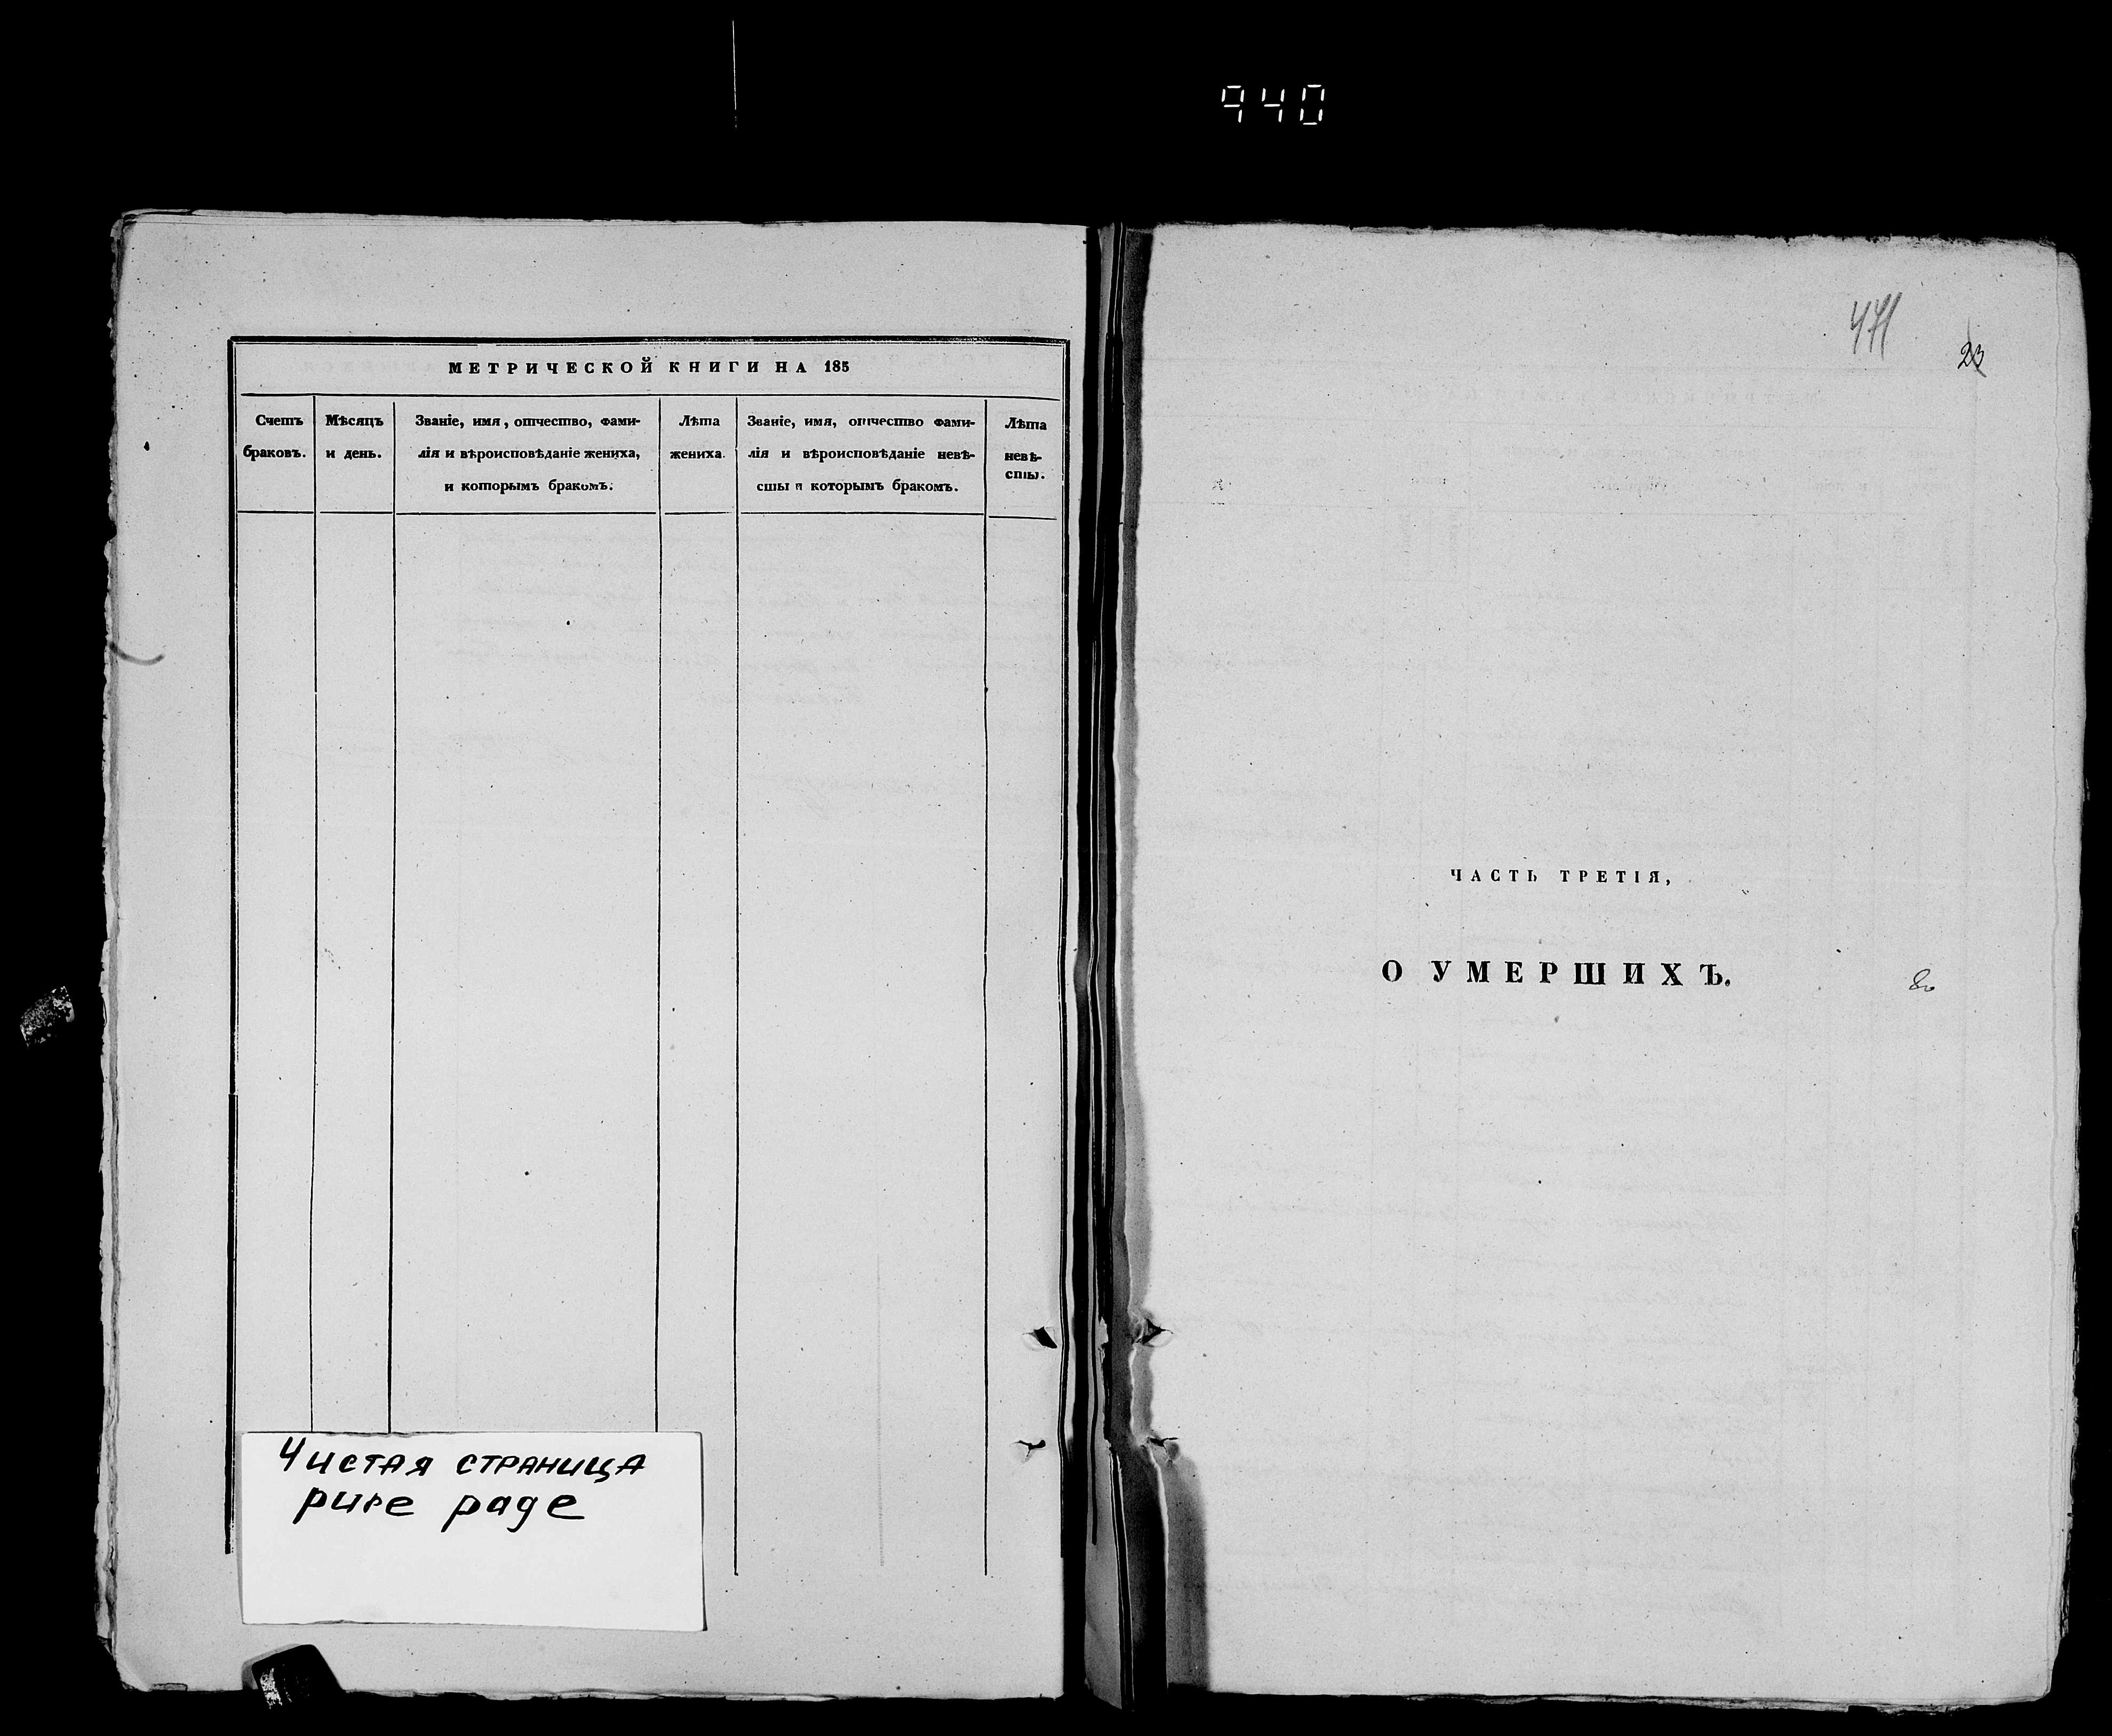 940
МЕТРИЧЕСКОЙ КНИГИ НА 185
Счетъ браковъ.
Мѣсяцъ и день.
Званіе, имя, отчество, фами-
лія и вѣроисповѣданіе жениха,
и которымъ бракомъ.
Лѣта
жениха.
Званіе, имя, отчество фами-
лія и вѣроисповѣданіе невѣ-
сты и которымъ бракомъ.
Лѣта
невѣ-
сты.
Чистая страница
pure page
471
23
ЧАСТЬ ТРЕТІЯ,
О УМЕРШИХЪ.